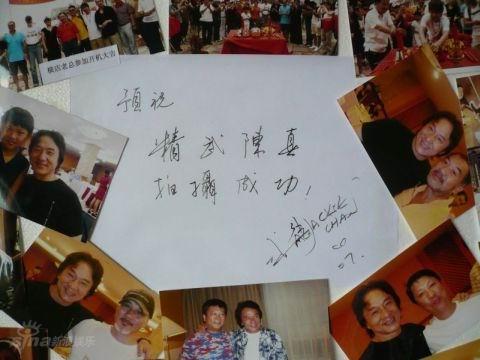 横店老总参加开机大吉
预祝
精武陳真
拍攝成功!
JACKIE
CHAN
07.
sina新浪娱乐